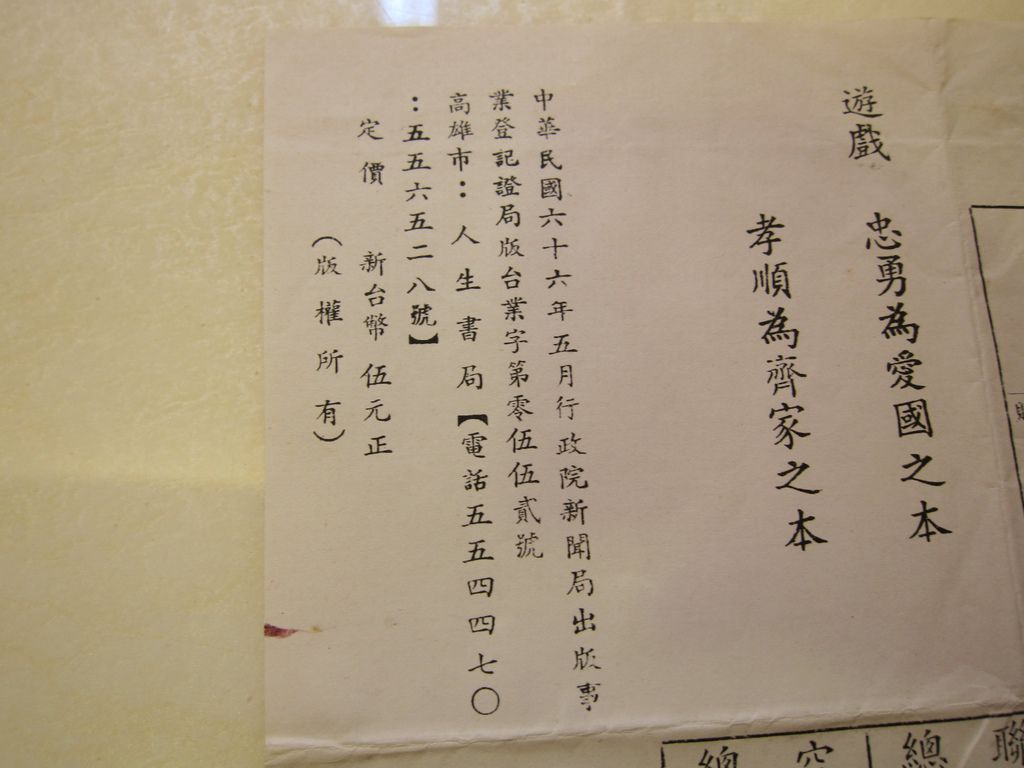 遊戲
忠勇為愛國之本
孝順為齊家之本
中華民國六十六年五月行政院新聞局出版事
業登記證局版台業字第零伍伍貳號
高雄市：人生書局【電話五五四四七〇
：五五六五二八號】
定價 新台幣伍元正
（版權所有）
聯
總
空
總